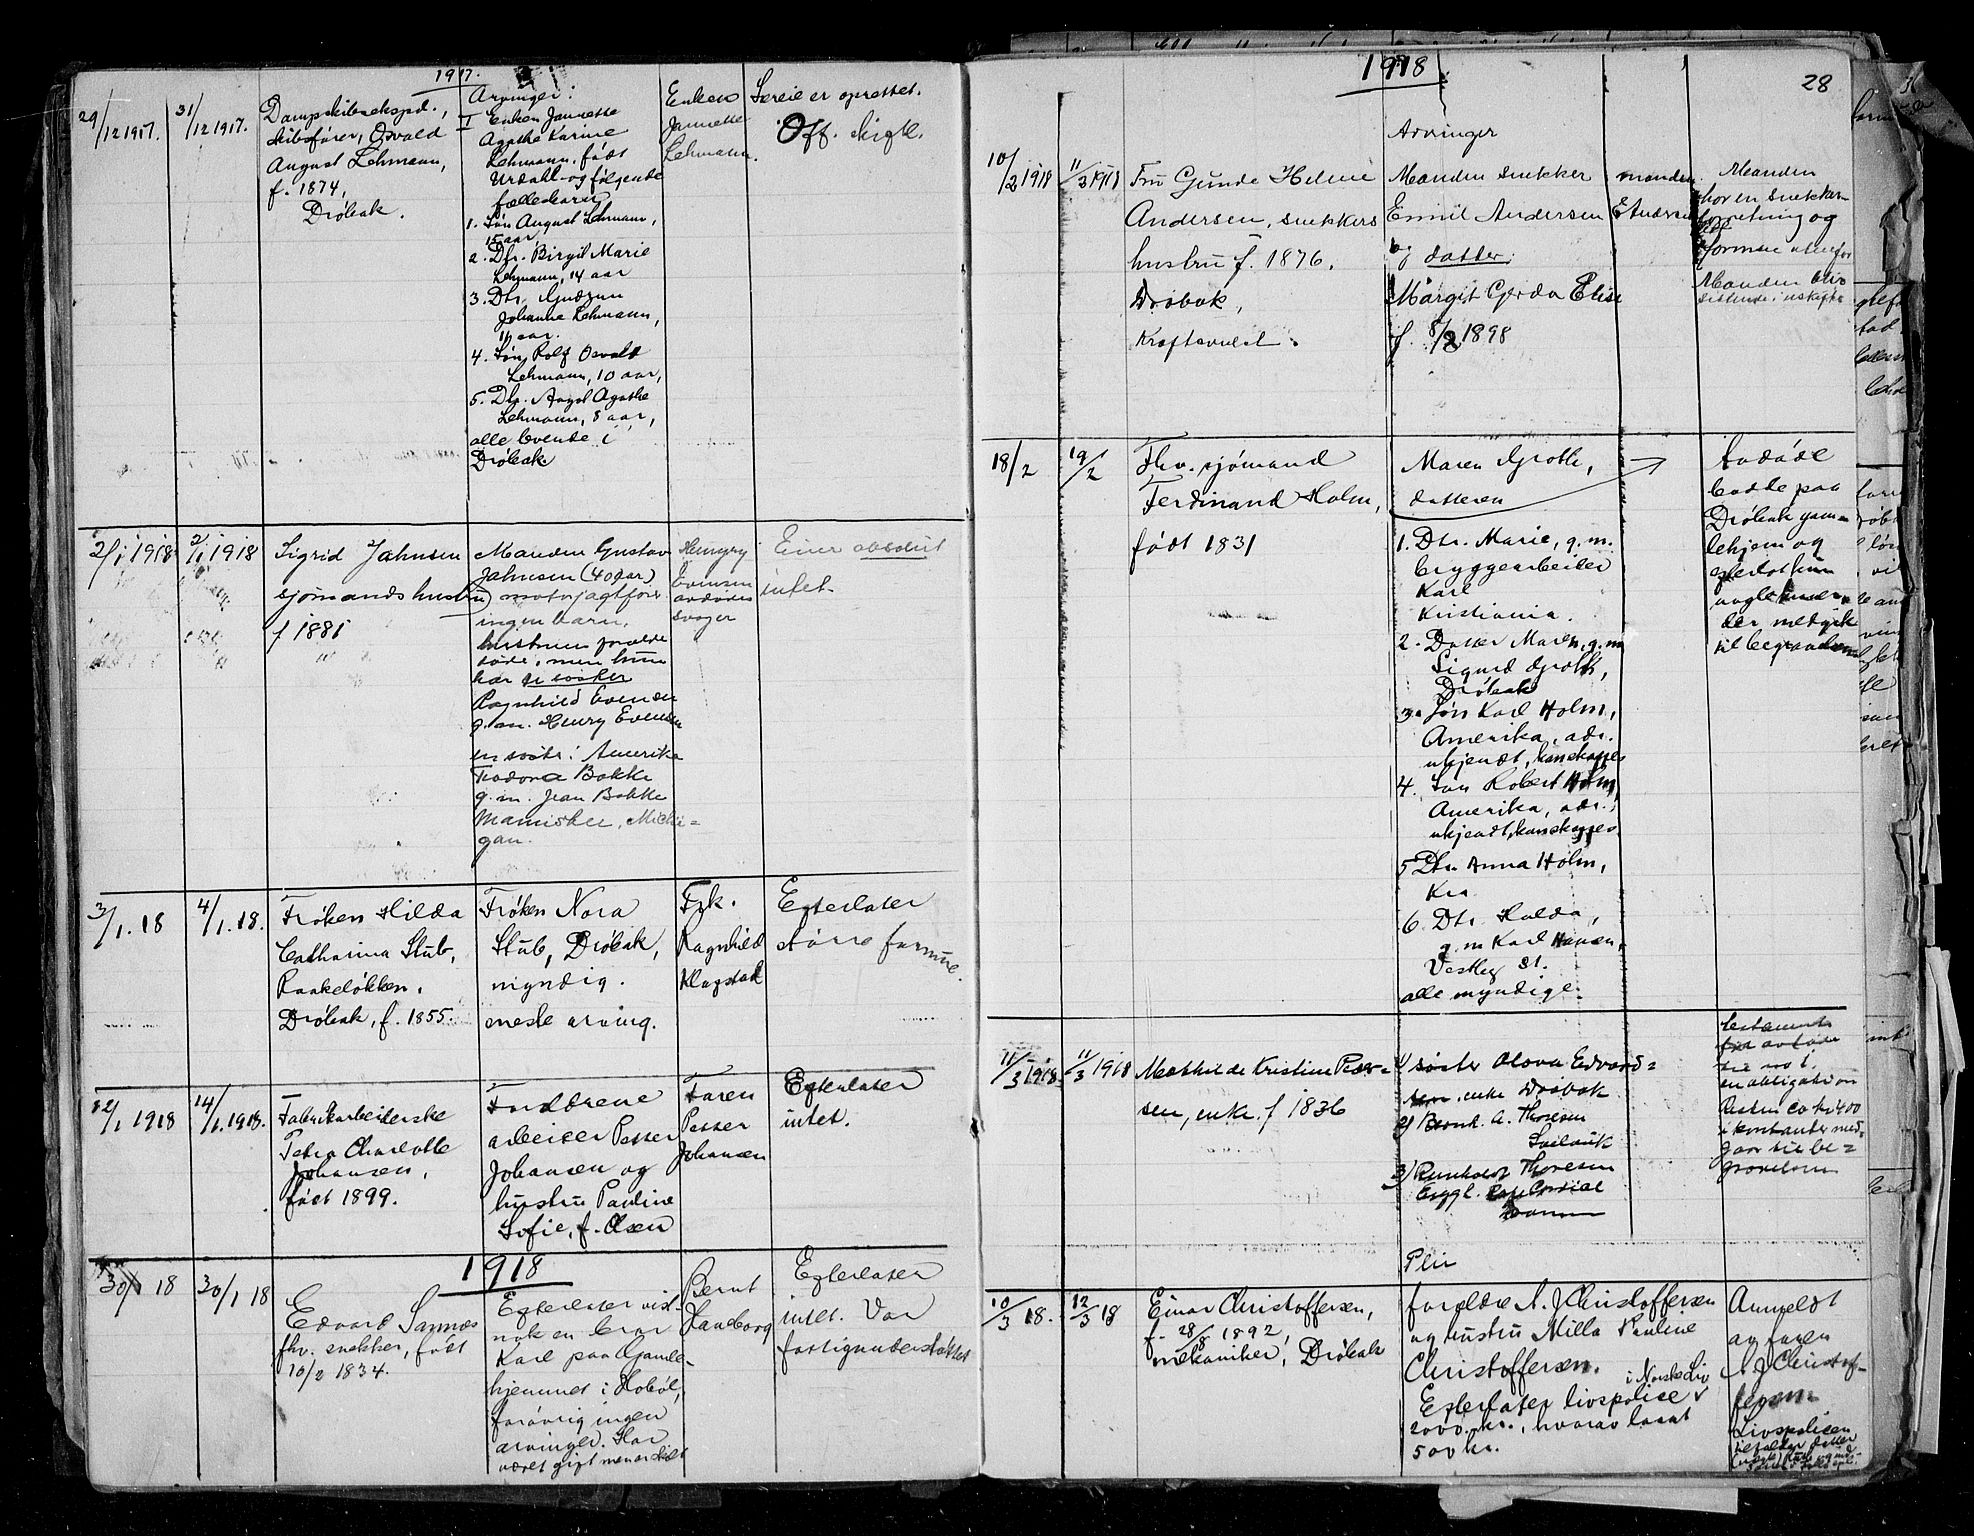 1917.
29/12 1917.
31/12 1917.
Dampskibsekspd.,
skibsfører, Osvald
August Lehmann,
f. 1874,
Drøbak.
Arvinger:
I Enken Jannette
Agathe Karine
Lehmann, født
Urdahl og følgende
fællesbarn
1. Søn August Lehmann,
15 aar,
2. Dtr. Birgit Marie
Lehmann, 14 aar
3. Dtr. Gudrun
Johanne Lehmann,
11 aar.
4. Søn Rolf Osvald
Lehmann, 10 aar,
5. Dtr. Aagot Agathe
Lehmann, 8 aar,
alle boende i
Drøbak
Enken
Jannette
Lehmann.
Særeie er oprettet.
Off. skifte.
2/1 1918
2/1 1918
Sigrid Jahnsen
sjømandshustru
f 1881
Manden Gustav
Jahnsen (40 aar)
motorjagtfører
ingen barn.
hustruen foreldre
døde, men hun
har to søsker
Ragnhild Evensen
g.m. Henry Evensen
en søster i Amerika
Teodora Bakke
g.m. Jean Bakke
Manistee, Michi=
gan.
Henry
Evensen
avdødes
svoger
Eiier absolut
intet
3/1. 18
4/1. 18.
Frøken Hilda
Catharina Stub,
Raakeløkken,
Drøbak, f. 1855.
Frøken Nora
Stub, Drøbak,
myndig.
eneste arving.
Frk.
Ragnhild
Klagstad
Efterlater
større formue.
12/1 1918
14/1. 1918.
Fabrikarbeiderske
Petra Charlotte
Johansen,
født 1899.
Forældrene
arbeider Petter
Johansen og
hustru Pauline
Sofie, f. Olsen
Faren
Petter
Johansen
Efterlater
intet.
1918
30/1 18
30/1 18
Edvard Sannes
fhv. snekker, født
10/2 1834.
Efterlater vist-
nok en bror
Karl paa Gamle-
hjemmet i Hobøl,
forøvrig ingen
arvinger. Har
været gift men er skilt
Bernt
Haneborg
Efterlater
intet. Var
fattigunderstøttet
1918
28
10/2 1918
11/2 1918
Fru Gunda Helene
Andersen, snekkers
hustru f. 1876.
Drøbak,
Arvinger
Manden snekker
Emil Andersen
og datter:
Margit Gerda Elise
f. 8/2 1898
manden
E Andersen
Manden
har en snekker-
forretning og
Manden
18/2
19/2
Fhv. sjømand
Ferdinand Holm,
født 1831
Maren Groth,
datteren
1. Dtr. Marie, g.m.
bryggearbeider
Karl
Kristiania.
2. Datter Maren, g.m
Sigurd Groth,
Drøbak
3. Søn Karl Holm,
Amerika, adr.
ukjendt,
4. Søn Robert Holm,
Amerika, adr.
ukjendt,
5 Dtr. Anna Holm,
Kra
6. Dtr. Hulda,
g.m Karl Hansen,
Vestby St.
alle myndige.
Avdøde
bodde paa
Drøbak gam-
lehjem og
efterlot kun
nogle
der medgik
til begravelsen
11/3 1918
11/3 1918
Mathilde Kristine Peder=
sen, enke f 1836
1/ søster Olova Edvard=
sen, enke Drøbak
2/ A. Thoresen
3) Reinholdt Thoresen
testamente
en obligation
Resten ca kr 400
i kontanter med-
gaar til be=
gravelsen
10/3 18.
12/3 18
Einar Christoffersen,
f. 28/8 1892,
mekaniker, Drøbak
foreldre A. J Christoffersen
og hustru Milla Pauline
Christoffersen.
Efterlater livspolice i Norske Liv
2000 kr., hvorav laant
500 kr.
Anmeldt
av faren
A. J Christof-
fersen
Livspolicen
tilfalder